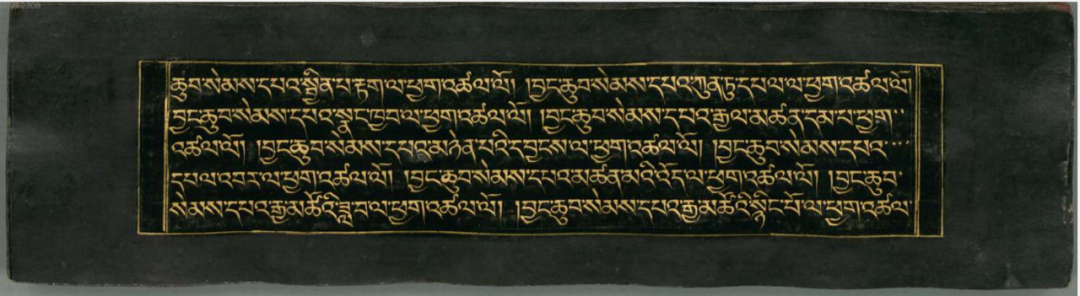 ཆུབ་སེམས་དཔའ་སྦྱིན་པ་རྟག་ལ་ཕྱག་འཚལ་ལོ། །བྱང་ཆུབ་སེམས་དཔའ་ཀུན་ཏུ་དཔལ་ལ་ཕྱག་འཚལ་ལོ
བྱང་ཆུབ་སེམས་དཔའ་སྣང་ཁྱབ་ལ་ཕྱག་འཚལ་ལོ། །བྱང་ཆུབ་སེམས་དཔའ་རྒྱལ་མཚན་དམ་པ་ཕྱག་
འཚལ་ལོ། །བྱང་ཆུབ་སེམས་དཔའ་མཉེན་པའི་དབྱངས་ལ་ཕྱག་འཚལ་ལོ། །བྱང་ཆུབ་སེམས་དཔའ་
དཔལ་འབར་ལ་ཕྱག་འཚལ་ལོ། །བྱང་ཆུབ་སེམས་དཔའ་མཚན་མའི་འོད་ལ་ཕྱག་འཚལ་ལོ། །བྱང་ཆུབ་
སེམས་དཔའ་རྒྱ་མཚོའི་བློ་ལ་ཕྱག་འཚལ་ལོ། །བྱང་ཆུབ་སེམས་དཔའ་རྒྱ་མཚོའི་སྙིང་པོ་ལ་ཕྱག་འཚལ་